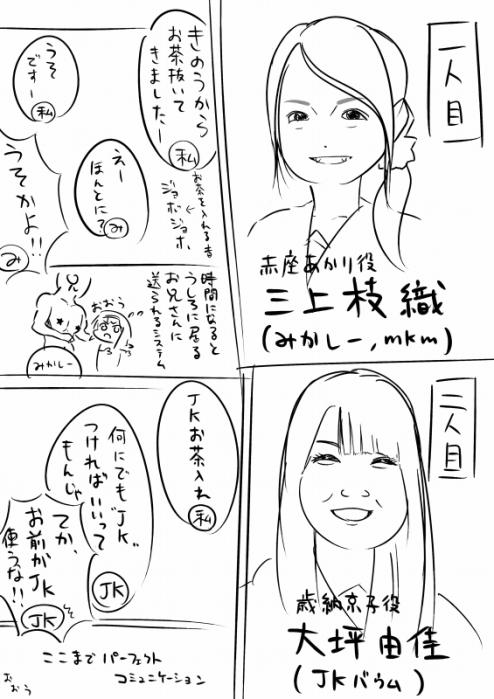 一人目
赤座あかり役
三上枝織
(みかしー,mkm)
きのうから
お茶抜いて
きましたー
私
お茶を入れる音
ジョボジョボ、
えー
ほんとに?
み
うそ
ですー
私
うそかよ!!
み
時間になると
うしろに居る
お兄さんに
送られるシステム
兄
おおう
みかしー
二人目
歳納京子役
大坪由佳
(JKバウム)
JKお茶入れ
私
何にでも"JK"
つければいいって
もんじゃ
JK
てか、
お前がJK
使うな!!
JK
ここまでパーフェクト
コミュニケーション
おおう